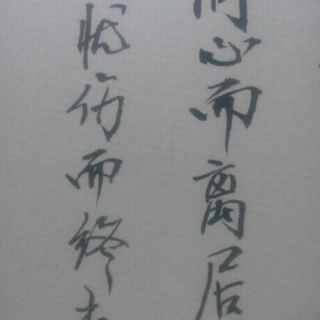 同心而离居
忧伤而终老